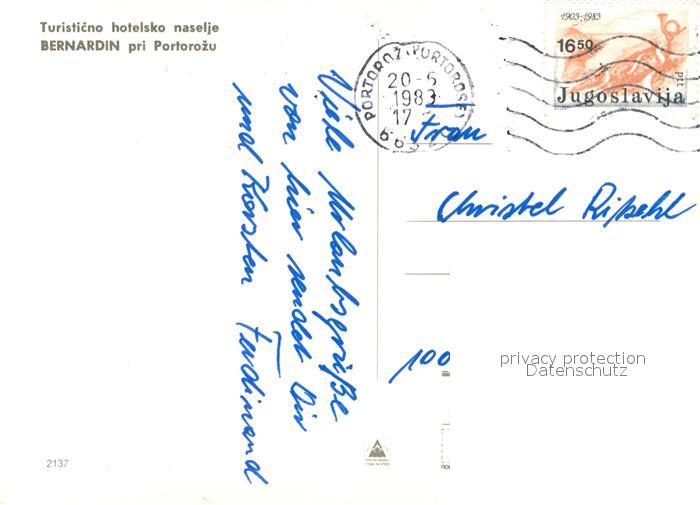 Turistično hotelsko naselje
BERNARDIN pri Portorožu
1903-1983
16.50
ptt
Jugoslavija
PORTOROŽ-PORTOROSE
20-6
1983
17
Viele Urlaubsgrüße
von hier sendet Dir
und Torsten Ferdinand
Frau
Christel
100
privacy protection
Datenschutz
2137